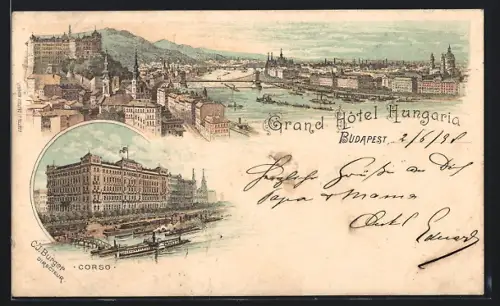 Grand Hôtel Hungaria
BUDAPEST, 2/6/98
Herzliche Grüße an Dich
Papa & Mama
Onkel Eduard
C.J. Burger
DIRECTEUR
· CORSO ·